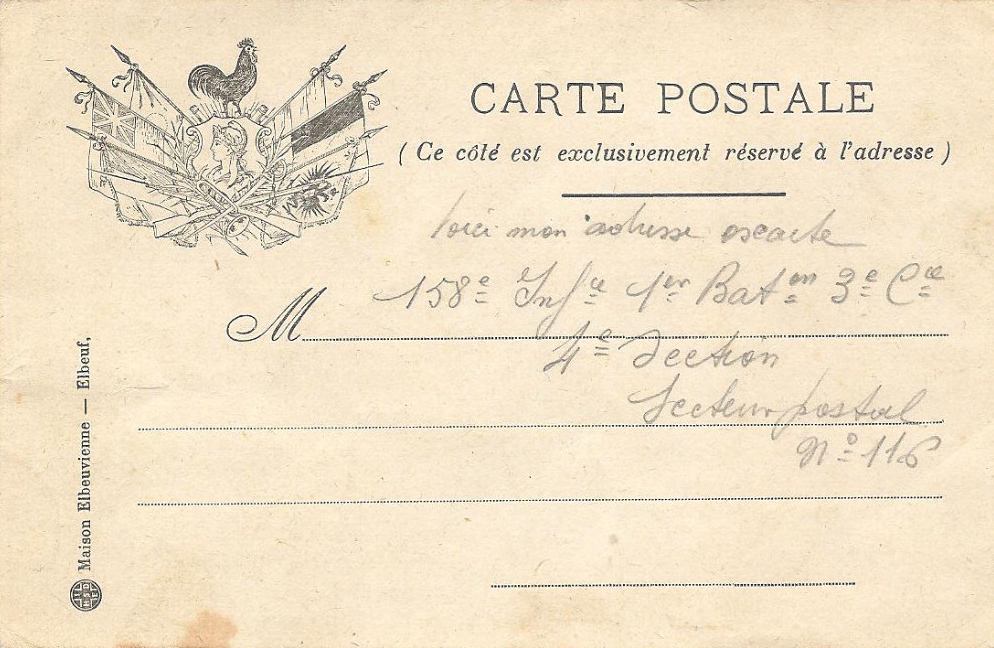 CARTE POSTALE
(Ce côté est exclusivement réservé à l'adresse)
Voici mon adresse exacte
158e Infie 1er Baton 3e Cie
M
4e Section
Secteur postal
No 116
Maison Elbeuvienne — Elbeuf,